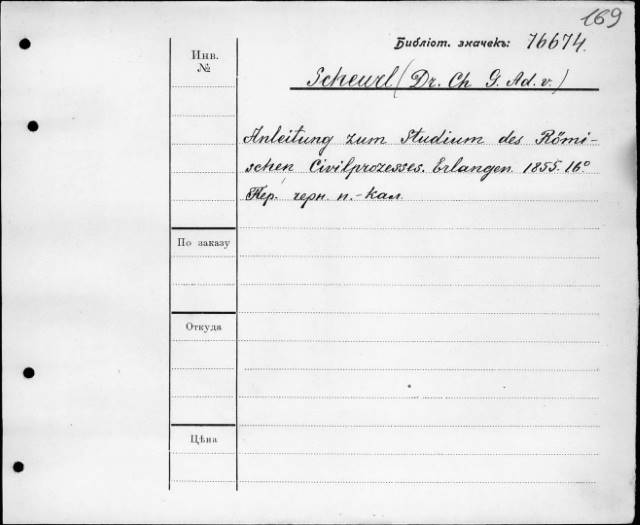 169
Библіот. значекъ: 76674.
Инв.
№
Scheurl (Dr. Ch. G. Ad. v.)
Anleitung zum Studium des Römi-
schen Civilprozesses. Erlangen. 1855. 16°
Пер. черн. п.-кал.
По заказу
Откуда
Цѣна